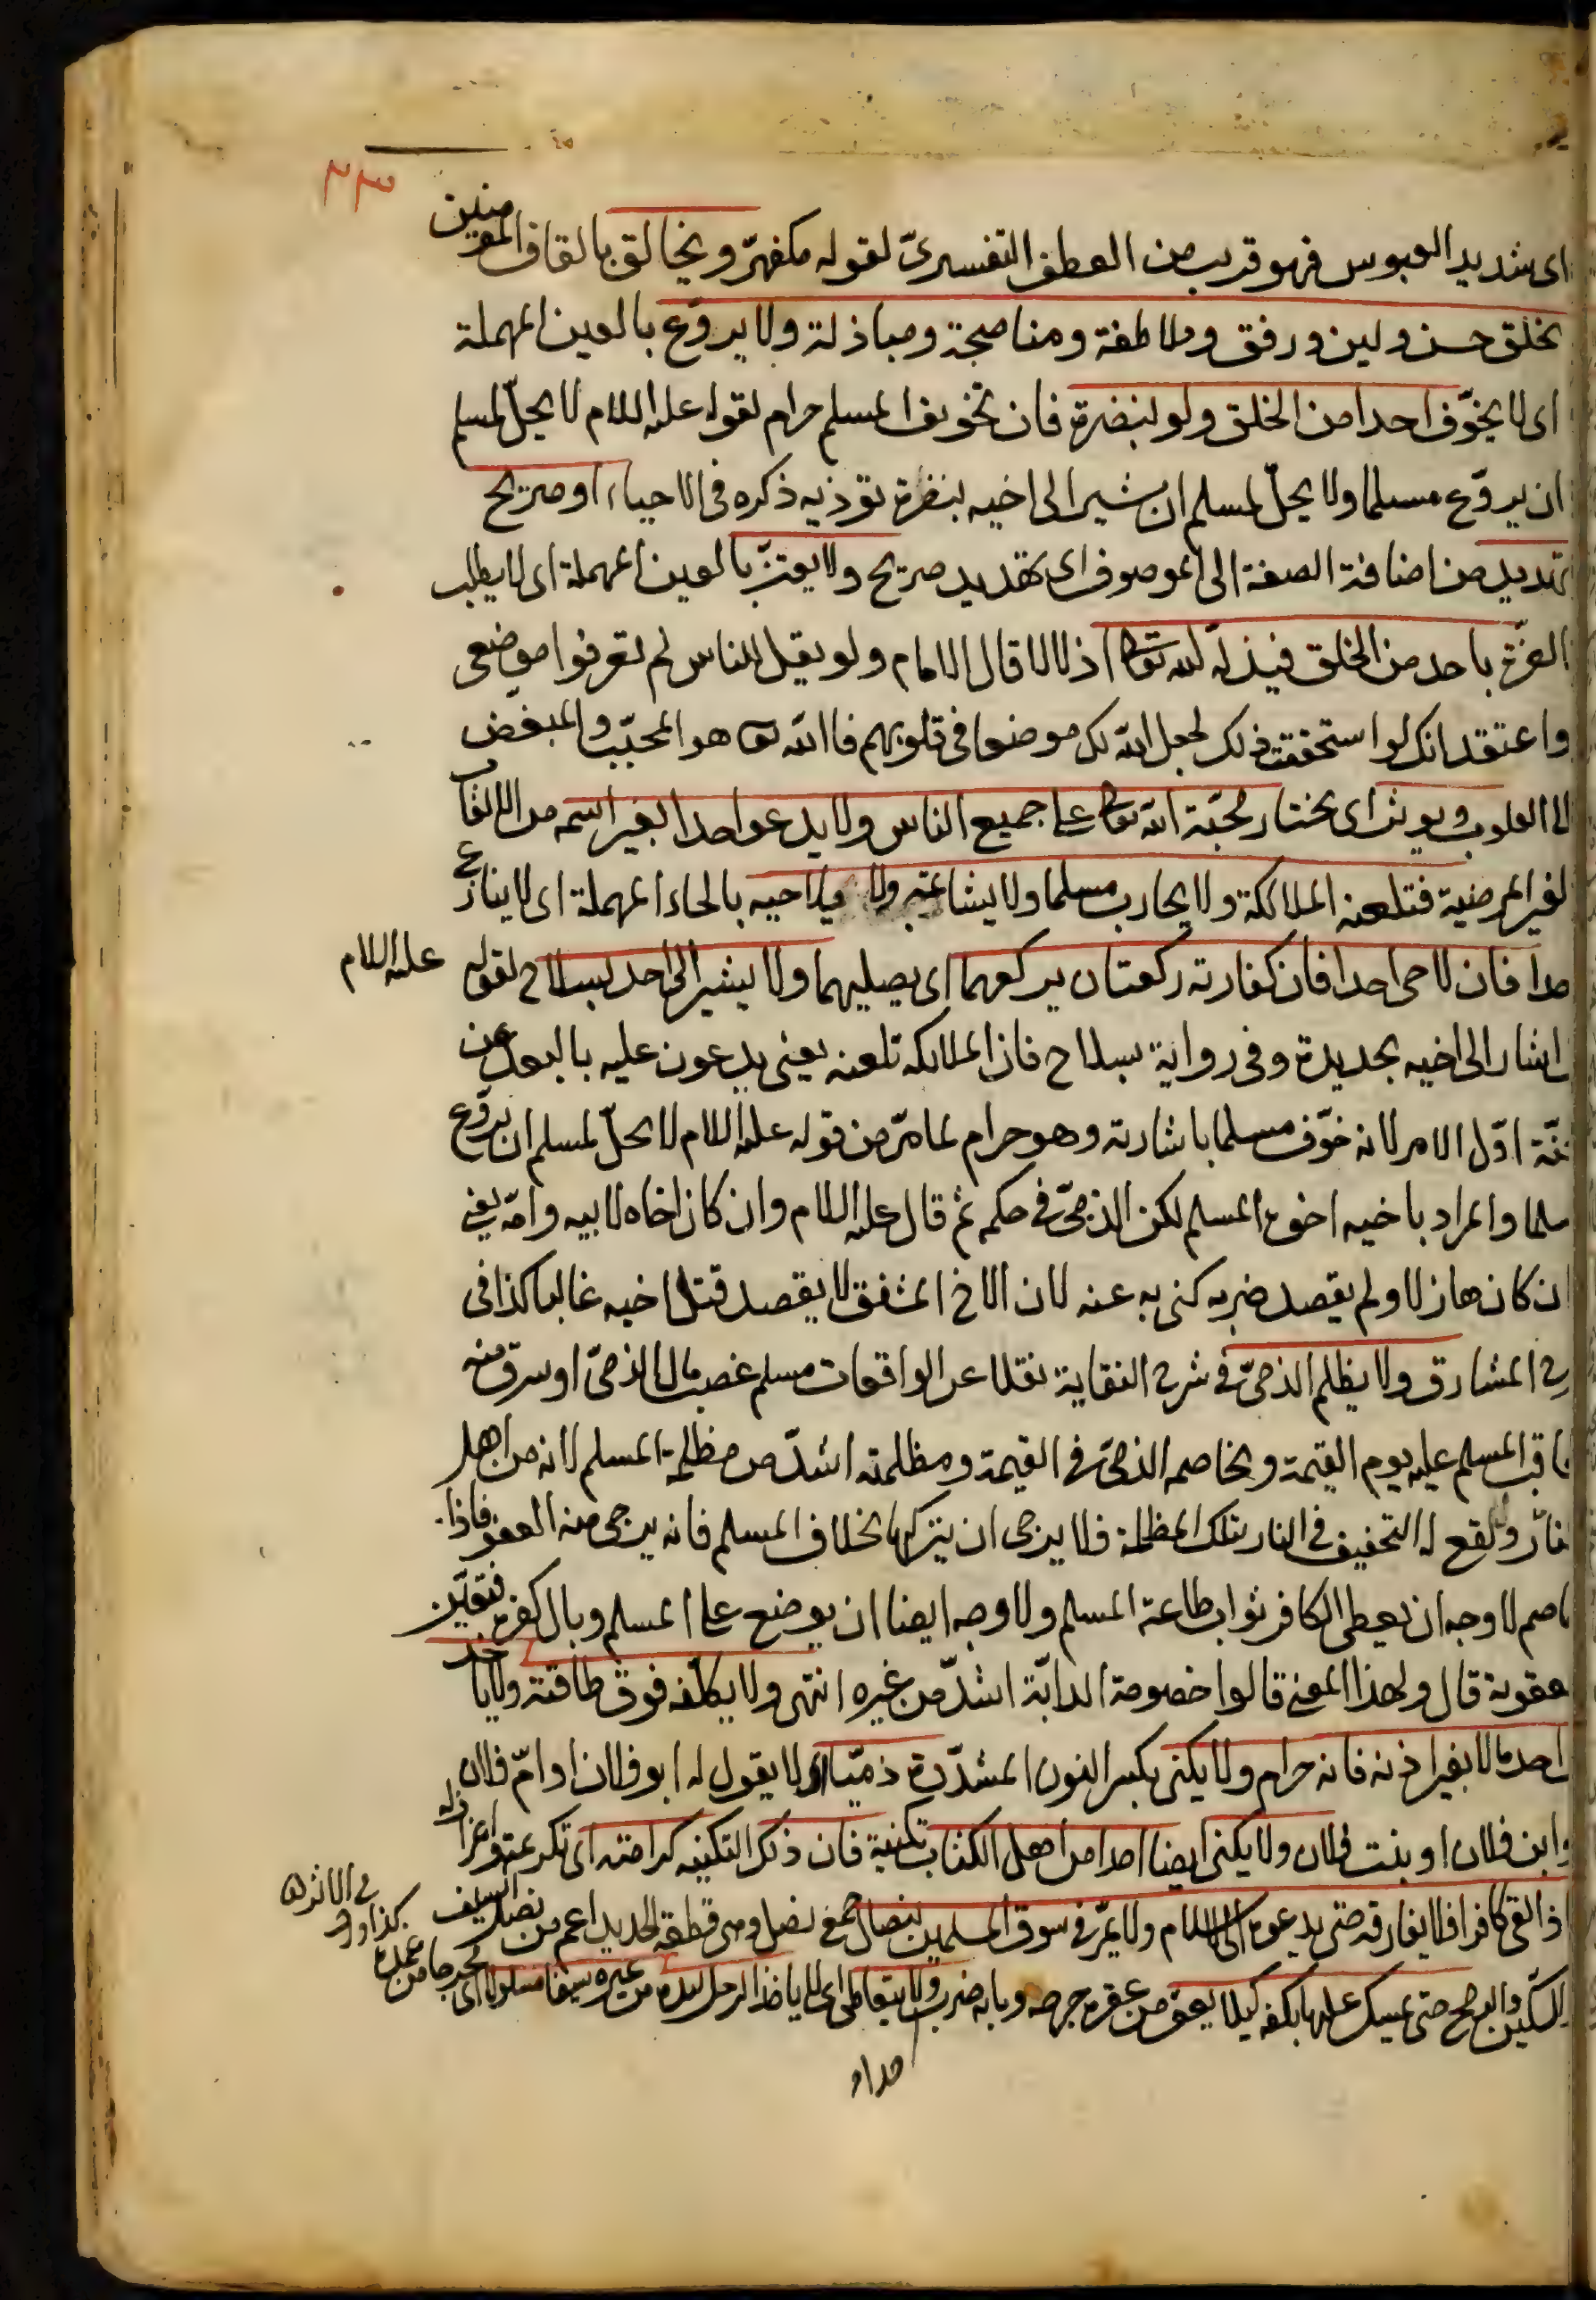 ٢٣٣
اى شديد العبوس فهو قريب من العطف التفسيرىّ لقوله مكفهرّ ويخالق بالقاف المؤمنين
بخلق حسن ولين ورفق وملاطفة ومناصحة ومباذلة ولا يروّع بالعين المهملة
اى لا يخوّف احدا من الخلق ولو بنضرة فان تخويف المسلم حرام لقوله عليه السلام لا يحلّ لمسلم
ان يروّع مسلما ولا يحلّ لمسلم ان يشير الى اخيه بنضرة تؤذيه ذكره فى الاحياء او صريح
تهديد من اضافة الصفة الى الموصوف اى تهديد صريح ولا يعتزّ بالعين المهملة اى لا يطلب
العزّة باحد من الخلق فيذلّه الله تعالى اذلالا قال الامام ولو يقبل الناس لم تعرفوا موضعى
واعتقد انك لو استحققت ذلك لجعل الله لك موضعا فى قلوبهم فالله تعالى هو المحبّب والمبغّض
الى القلوب ويؤثر اى يختار محبّة الله تعالى على جميع الناس ولا يدعو احدا بغير اسمه من الالقاب
الغير المرضية فتلعنه الملائكة ولا يحارب مسلما ولا يشاغبه ولا يلاحيه بالحاء المهملة اى لا ينازع
احدا فان لاحى احدا فان كفارته ركعتان يركعهما اى يصليهما ولا يشير الى احد بسلاح لقوله عليه السلام
اشار الى اخيه بحديدة وفى رواية بسلاح فان الملائكة تلعنه يعنى يدعون عليه بالبعد عن
الجنّة اوّل الامر لانه خوّف مسلما باشارته وهو حرام لما مرّ من قوله عليه السلام لا يحلّ لمسلم ان يروّع
مسلما والمراد باخيه اخوه المسلم لكن الذمىّ فى حكمه ثم قال عليه السلام وان كان اخاه لابيه وامّه يعنى
ان كان هازلا ولم يقصد ضربه كنى به عنه لان الاخ المشفق لا يقصد قتل اخيه غالبا كذا فى
شرح المشارق ولا يظلم الذمىّ فى شرح النقاية نقلا عن الواقعات مسلم غصب مال الذمىّ او سرق منه
يعاقب المسلم عليه يوم القيمة ويخاصمه الذمىّ فى القيمة ومظلمته اشدّ من مظلمة المسلم لانه من اهل
النار ويقع له التخفيف فى النار بتلك المظلمة فلا يرجى ان يتركها بخلاف المسلم فانه يرجى منه العفو فاذا
خاصم لا وجه ان يعطى الكافر ثواب طاعة المسلم ولا وجه ايضا ان يوضع على المسلم وبال كفره فتعيّن
عقوبة قال ولهذا المعنى قالوا خصومة الدابّة اشدّ من غيره انتهى ولا يكلّفه فوق طاقته ولا يأخذ
احد مالا بغير اذنه فانه حرام ولا يكنى بكسر النون المشدّدة ذميّا اى لا يقول له ابو فلان او امّ فلان
وابن فلان او بنت فلان ولا يكنى ايضا احدا من اهل الكتاب بكنية فان ذكر التكنيه كرامته اى تكرمته واعزازه
اذا لقى كافرا فلا يفارقه حتى يدعوه الى الاسلام ولا يمرّ فى سوق المسلمين بنصال جمع نصل وهى قطعة الحديد اعم من نصل السيف كذا فى الاثر
والسكّين والرمح حتى يمسك عليها بكفه كيلا يعقر من عقره جرحه وبابه ضرب ولا يتعاطى اى لا يأخذ الرجل بيده من غيره سيفا مسلولا اى مخرجا من غمده